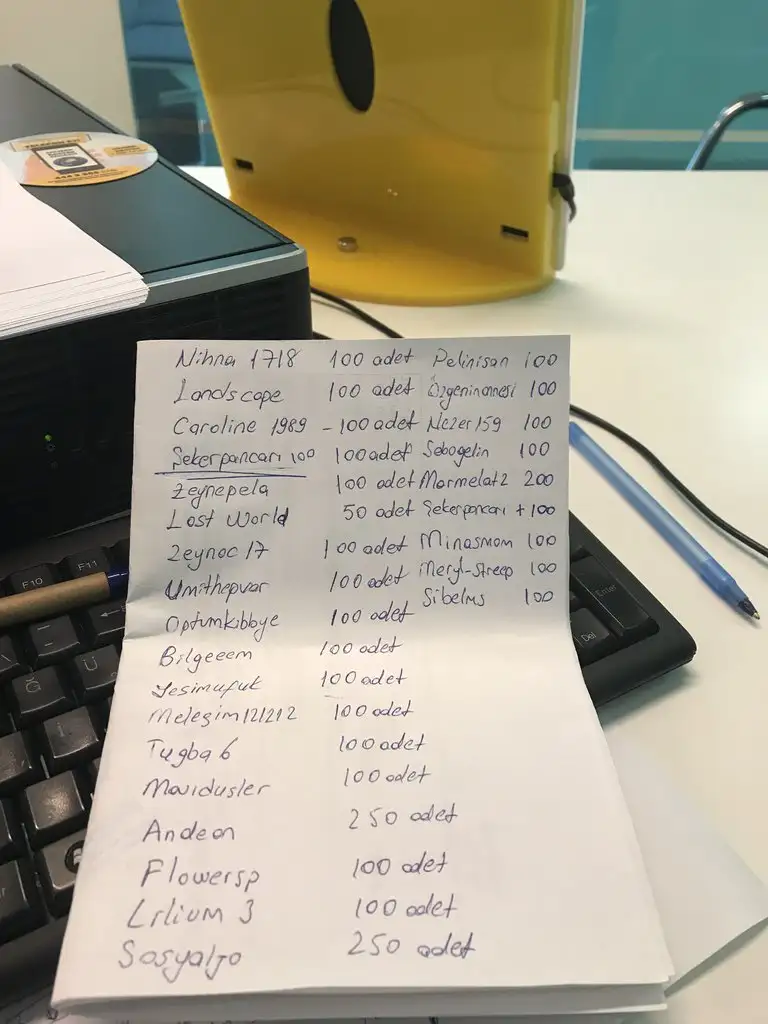 Nihna 1718 100 adet Pelinisan 100
Landscape 100 adet Özgeninannesi 100
Caroline 1989 - 100 adet Nezer159 100
Şekerpancarı 100 100 adet Sebogelin 100
Zeynepela 100 adet Marmelat2 200
Lost World 50 adet Şekerpancarı +100
Zeynoc 17 100 adet Minasmom 100
Umithepvar 100 adet Meryl-streep 100
Optumkibbye 100 adet Sibelms 100
Bilgeeem 100 adet
Yesimufuk 100 adet
Melegim121212 100 adet
Tugba 6 100 adet
Mavidusler 100 adet
Andeon 250 adet
Flowersp 100 adet
Lilium 3 100 adet
Sosyaljo 250 adet
F10
F11
Ğ
Ü
Enter
Del